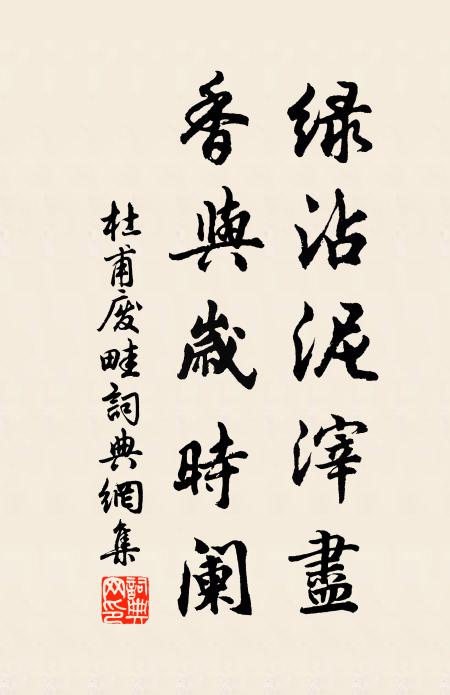 绿沾泥滓盡
香與歲時阑
杜甫廢畦詞典網集
詞典网印